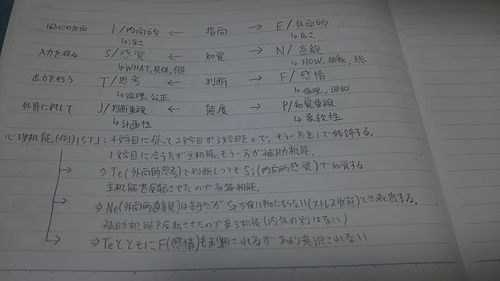 関心の方向 I/内向的 ← 指向 → E/外向的
↳深さ ↳広さ
入力を得る S/感覚 ← 知覚 → N/直観
↳WHAT,具体,個 ↳HOW,抽象,総
出力を行う T/思考 ← 判断 → F/感情
↳論理,公正 ↳倫理,調和
外界に対して J/判断重視 ← 態度 → P/知覚重視
↳計画性 ↳柔軟性
心理機能,(例)ISTJ:4文字目に従って2文字目か3文字目をeで,もう一方をiで修飾する。
1文字目に合う方が主機能,もう一方が補助機能。
⇒Te(外向的思考)で判断しつつもSi(内向的感覚)で知覚する
主機能を反転させたのが劣等機能。
⇒Ne(外向的直観)は苦手だがSiが使い物にならない(ストレス状態)と表出する。
補助機能を反転させたのが第三機能(内外の別はない)
⇒TeとともにF(感情)も利用されるがあまり意識されない